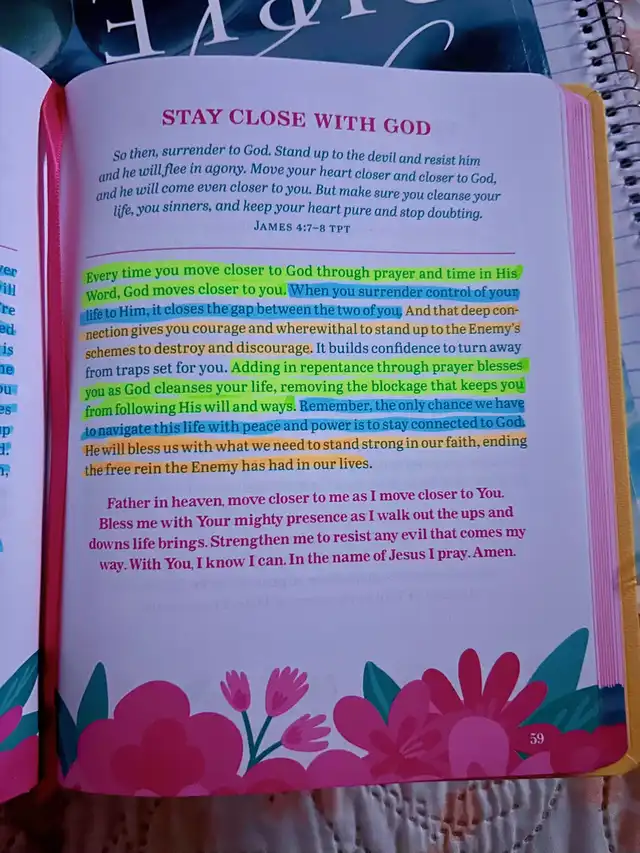 STAY CLOSE WITH GOD
So then, surrender to God. Stand up to the devil and resist him
and he will flee in agony. Move your heart closer and closer to God,
and he will come even closer to you. But make sure you cleanse your
life, you sinners, and keep your heart pure and stop doubting.
JAMES 4:7–8 TPT
Every time you move closer to God through prayer and time in His
Word, God moves closer to you. When you surrender control of your
life to Him, it closes the gap between the two of you. And that deep con-
nection gives you courage and wherewithal to stand up to the Enemy's
schemes to destroy and discourage. It builds confidence to turn away
from traps set for you. Adding in repentance through prayer blesses
you as God cleanses your life, removing the blockage that keeps you
from following His will and ways. Remember, the only chance we have
to navigate this life with peace and power is to stay connected to God.
He will bless us with what we need to stand strong in our faith, ending
the free rein the Enemy has had in our lives.
Father in heaven, move closer to me as I move closer to You.
Bless me with Your mighty presence as I walk out the ups and
downs life brings. Strengthen me to resist any evil that comes my
way. With You, I know I can. In the name of Jesus I pray. Amen.
59